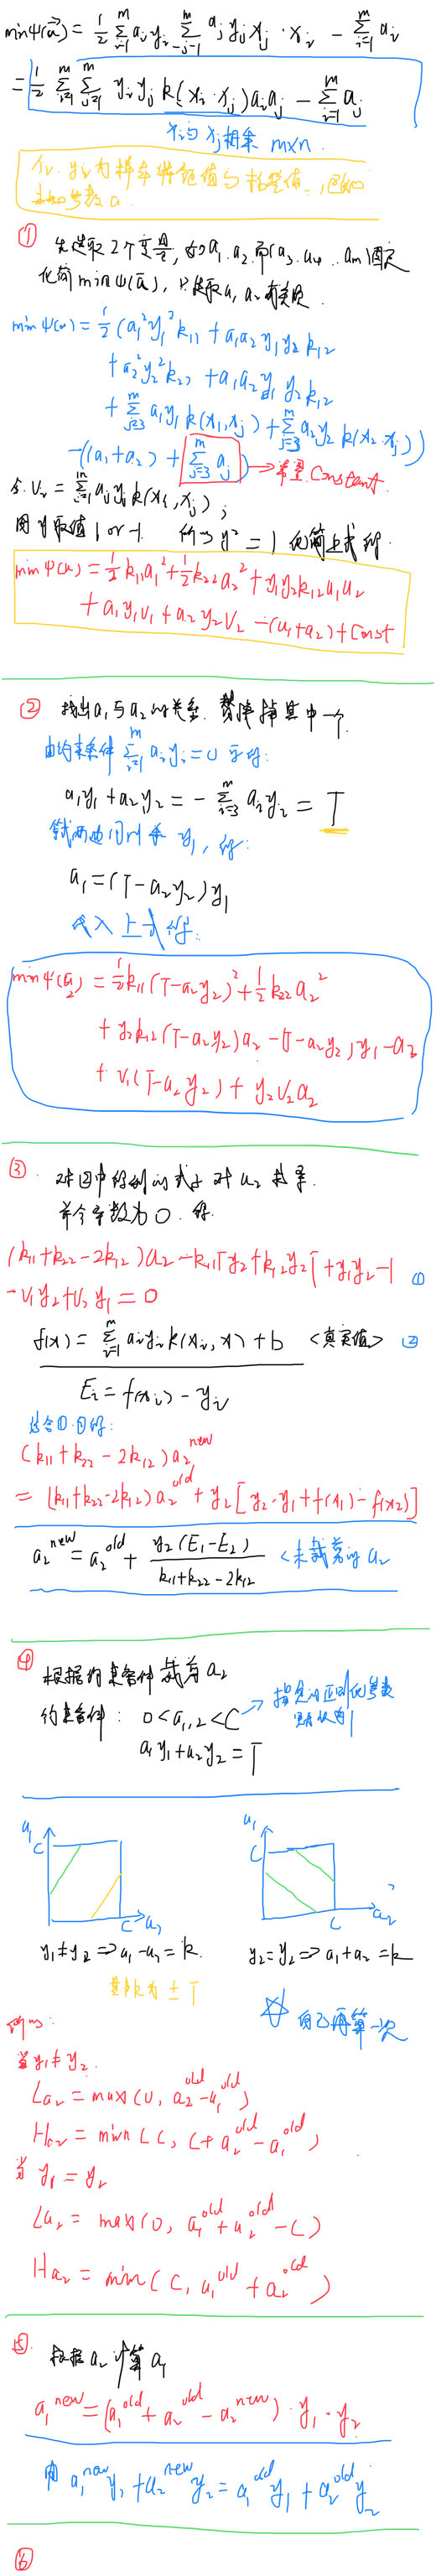 minψ(a⃗) = 1/2 Σ_{i=1}^m a_i y_i Σ_{j=1}^m a_j y_j x_j · x_i − Σ_{i=1}^m a_i
= 1/2 Σ_{i=1}^m Σ_{j=1}^m y_i y_j k(x_i · x_j) a_i a_j − Σ_{i=1}^m a_j
x_i 与 x_j 相乘 m×n
x_i. y_i 为样本特征值与标签值
参数 a.
① 先选取2个变量, 如 a_1. a_2. 而(a_3. a_4 .. a_m)固定
化简 min ψ(a⃗), 只选取 a_1, a_2 有关项.
min ψ(a) = 1/2 (a_1² y_1² k_11 + a_1 a_2 y_1 y_2 k_12
+ a_2² y_2² k_22 + a_1 a_2 y_1 y_2 k_12
+ Σ_{j=3}^m a_1 y_1 k(x_1, x_j) + Σ_{j=3}^m a_2 y_2 k(x_2. x_j))
−((a_1+a_2) + Σ_{j=3}^m a_j) → 常量 Constant.
令 V_i = Σ a_j y_j k(x_i, x_j) ;
因 y 取值 1 or -1. 所以 y² = 1 化简上式 得.
min ψ(a) = 1/2 k_11 a_1² + 1/2 k_22 a_2² + y_1 y_2 k_12 a_1 a_2
+ a_1 y_1 v_1 + a_2 y_2 V_2 − (a_1+a_2) + Const
② 找出 a_1 与 a_2 的关系. 替换掉其中一个.
由约束条件 Σ_{i=1}^m a_i y_i = 0 可得:
a_1 y_1 + a_2 y_2 = − Σ_{i=3}^m a_i y_i = T
等式两边同时乘 y_1, 得:
a_1 = (T − a_2 y_2) y_1
代入上式得:
min ψ(a_2) = 1/2 k_11 (T−a_2 y_2)² + 1/2 k_22 a_2²
+ y_2 k_12 (T−a_2 y_2) a_2 − (T−a_2 y_2) y_1 − a_2
+ v_1 (T−a_2 y_2) + y_2 v_2 a_2
③. 对②中得到的式子 对 a_2 求导.
并令导数为 0. 得.
(k_11 + k_22 − 2k_12) a_2 − k_11 T y_2 + k_12 y_2 T + y_1 y_2 − 1 ①
− v_1 y_2 + v_2 y_1 = 0
f(x) = Σ_{i=1}^m a_i y_i k(x_i, x) + b <真实值> ②
E_i = f(x_i) − y_i
结合①.②得:
(k_11 + k_22 − 2k_12) a_2^new
= (k_11 + k_22 − 2k_12) a_2^old + y_2 [y_2 − y_1 + f(x_1) − f(x_2)]
a_2^new = a_2^old + y_2 (E_1 − E_2) / (k_11 + k_22 − 2k_12) <未裁剪的 a_2
④ 根据约束条件裁剪 a_2
约束条件: 0 < a_{1,2} < C → 指定的正则化参数
默认为1
a_1 y_1 + a_2 y_2 = T
a_1 C C a_2
a_1 C C a_2
y_1 ≠ y_2 ⇒ a_1 − a_2 = k.
y_2 = y_2 ⇒ a_1 + a_2 = k
其中 k 为 ± T
☆ 自己再算一次
所以:
当 y_1 ≠ y_2.
L a_2 = max (0, a_2^old − a_1^old)
H a_2 = min (C, C + a_2^old − a_1^old)
当 y_1 = y_2
L a_2 = max (0, a_1^old + a_2^old − C)
H a_2 = min ( C, a_1^old + a_2^old )
⑤. 根据 a_2 计算 a_1
a_1^new = (a_1^old + a_2^old − a_2^new) · y_1 · y_2
由 a_1^new y_1 + a_2^new y_2 = a_1^old y_1 + a_2^old y_2
⑥